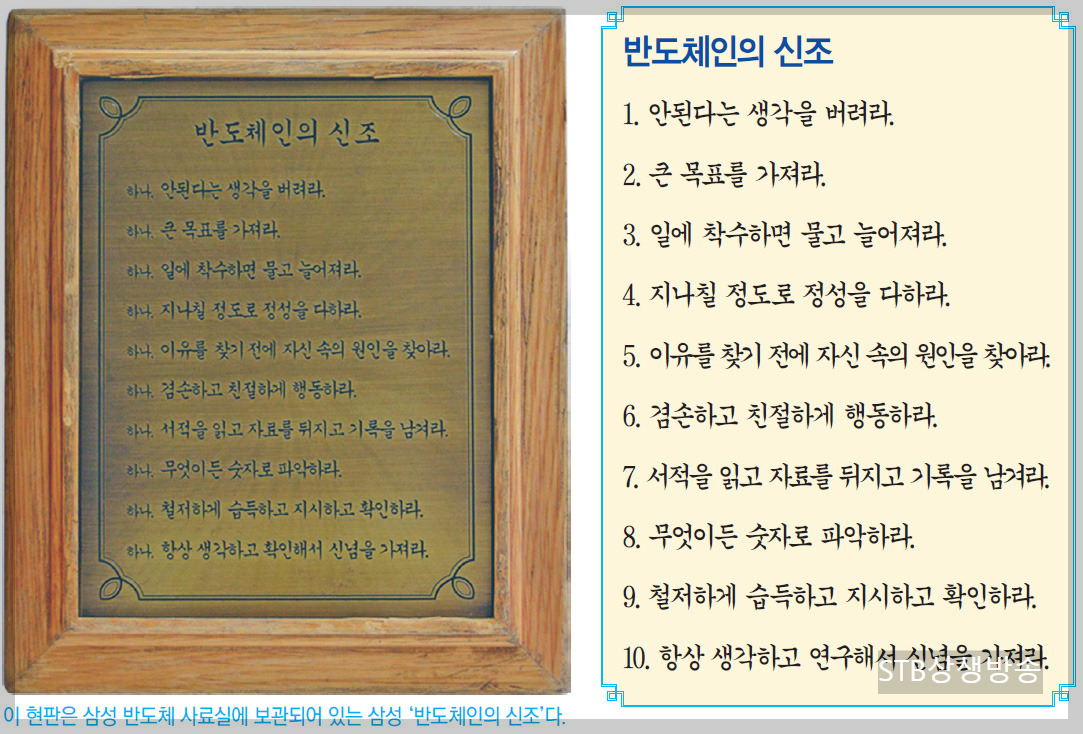 반도체인의 신조
하나. 안된다는 생각을 버려라.
하나. 큰 목표를 가져라.
하나. 일에 착수하면 물고 늘어져라.
하나. 지나칠 정도로 정성을 다하라.
하나. 이유를 찾기 전에 자신 속의 원인을 찾아라.
하나. 겸손하고 친절하게 행동하라.
하나. 서적을 읽고 자료를 뒤지고 기록을 남겨라.
하나. 무엇이든 숫자로 파악하라.
하나. 철저하게 습득하고 지시하고 확인하라.
하나. 항상 생각하고 확인해서 신념을 가져라.
이 현판은 삼성 반도체 사료실에 보관되어 있는 삼성 ‘반도체인의 신조’다.
반도체인의 신조
1. 안된다는 생각을 버려라.
2. 큰 목표를 가져라.
3. 일에 착수하면 물고 늘어져라.
4. 지나칠 정도로 정성을 다하라.
5. 이유를 찾기 전에 자신 속의 원인을 찾아라.
6. 겸손하고 친절하게 행동하라.
7. 서적을 읽고 자료를 뒤지고 기록을 남겨라.
8. 무엇이든 숫자로 파악하라.
9. 철저하게 습득하고 지시하고 확인하라.
10. 항상 생각하고 연구해서 신념을 가져라.
STB상생방송